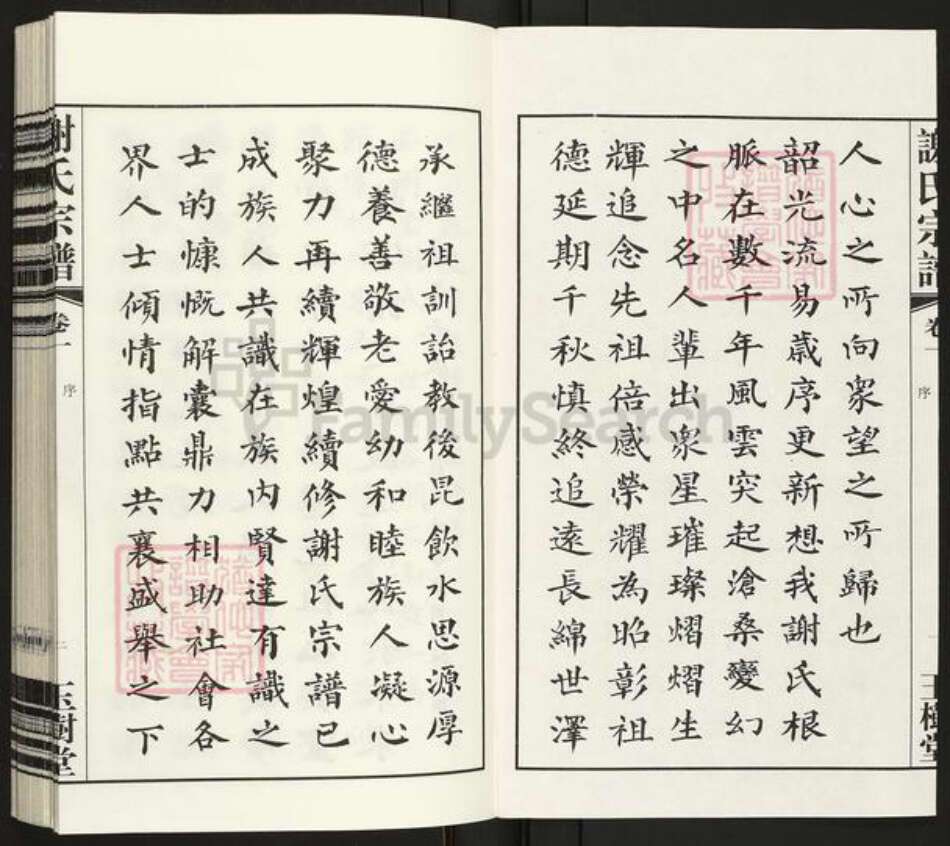 謝氏宗譜
卷一
序
玉樹堂
人心之所向衆望之所歸也
韶光流易歲序更新想我謝氏根
脈在數千年風雲突起滄桑變幻
之中名人輩出衆星璀璨熠熠生
輝追念先祖倍感榮耀為昭彰祖
德延期千秋慎終追遠長綿世澤
承繼祖訓詒教後昆飲水思源厚
德養善敬老愛幼和睦族人凝心
聚力再續輝煌續修謝氏宗譜已
成族人共識在族内賢達有識之
士的慷慨解囊鼎力相助社會各
界人士傾情指點共襄盛舉之下
謝氏宗譜
卷一
序
二
玉樹堂
FamilySearch